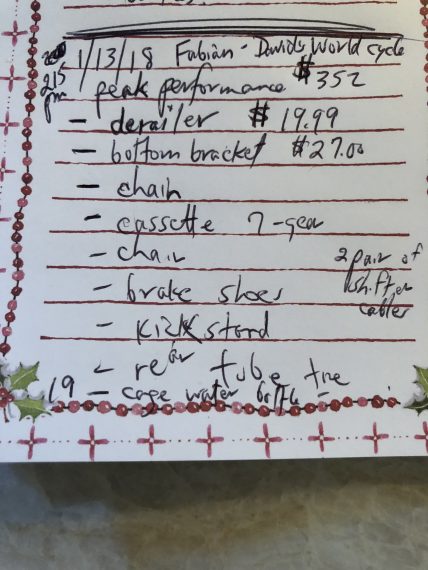 1/13/18 Fabian - Davids World cycle
215 pm
peak performance $352
- derailer $19.99
- bottom bracket $27.00
- chain
- cassette 7-gear
- chair
2 pair of
shifter
cables
- brake shoes
- kick stand
- rear tube tire
19 - cage water bottle -